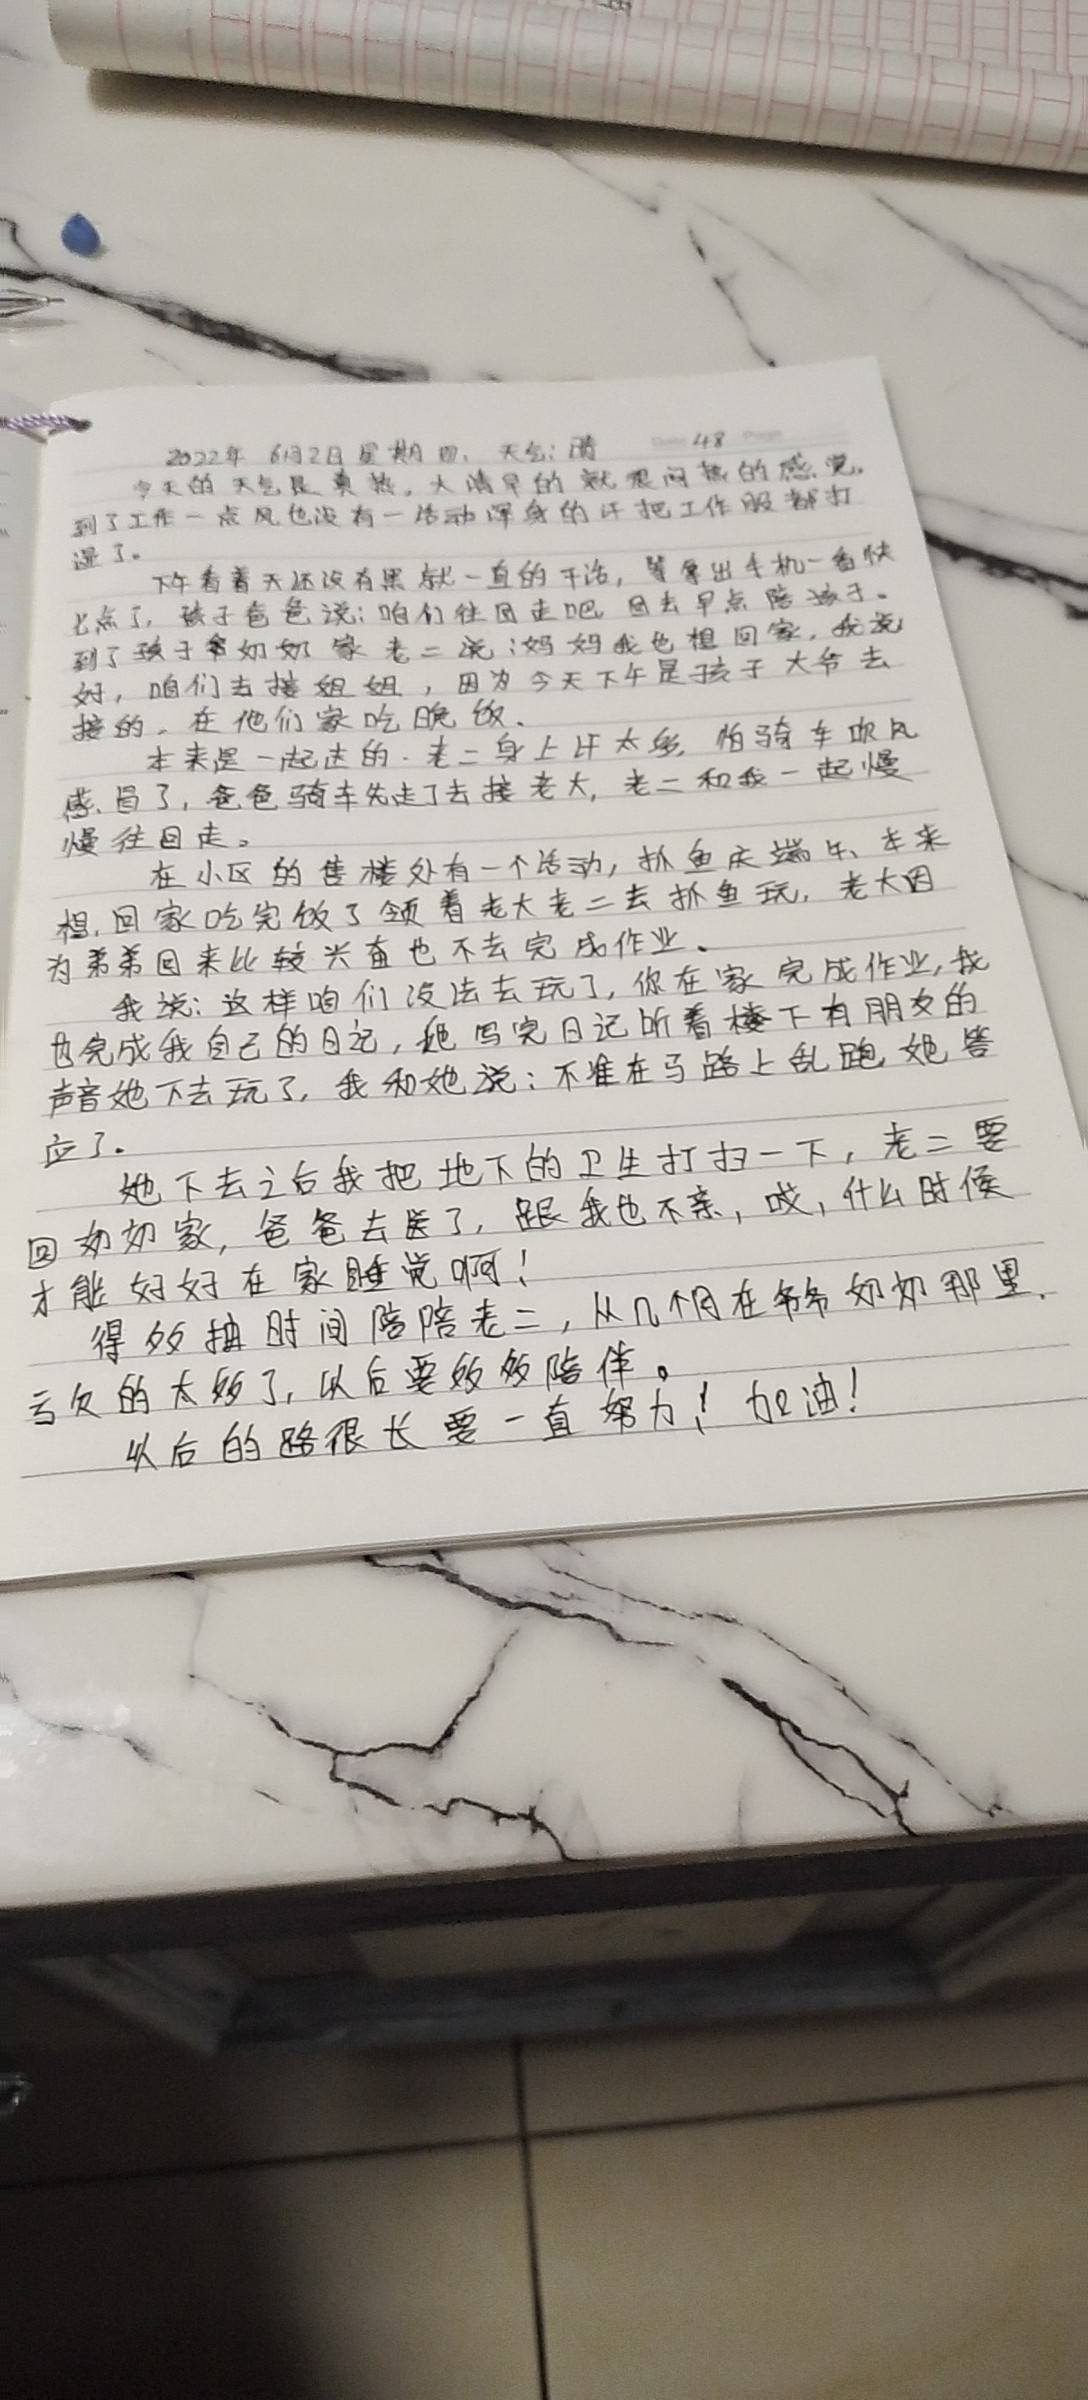 2022年 6月2日 星期四. 天气:晴 48
今天的天气是真热。大清早的就很闷热的感觉。
到了工作一点风也没有一活动浑身的汗把工作服都打
湿了。
下午看着天还没有黑就一直的干活,等拿出手机一看快
七点了,孩子爸爸说:咱们往回走吧 回去早点陪孩子。
到了孩子爷奶奶家老二说:妈妈我也想回家,我说
好,咱们去接姐姐,因为今天下午是孩子大爷去
接的,在他们家吃晚饭.
本来是一起走的.老二身上汗太多,怕骑车吹风
感冒了,爸爸骑车先走了去接老大,老二和我一起慢
慢往回走。
在小区的售楼处有一个活动,抓鱼庆端午、本来
想,回家吃完饭了领着老大老二去抓鱼玩,老大因
为弟弟回来比较兴奋也不去完成作业、
我说:这样咱们没法去玩了,你在家完成作业,我
也完成我自己的日记,她写完日记听着楼下有朋友的
声音她下去玩了,我和她说:不准在马路上乱跑,她答
应了.
她下去之后我把地下的卫生打扫一下,老二要
回奶奶家,爸爸去送了,跟我也不亲,哎,什么时候
才能好好在家睡觉啊!
得多抽时间陪陪老二,从几个月在爷爷奶奶那里.
亏欠的太多了,以后要多多陪伴。
以后的路很长要一直努力!加油!